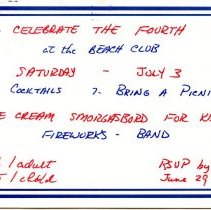 CELEBRATE THE FOURTH
at the BEACH CLUB
SATURDAY - JULY 3
COCKTAILS 7- BRING A PICNI
E CREAM SMORGASBORD FOR KI
FIREWORKS - BAND
/adult RSVP by
/child June 29